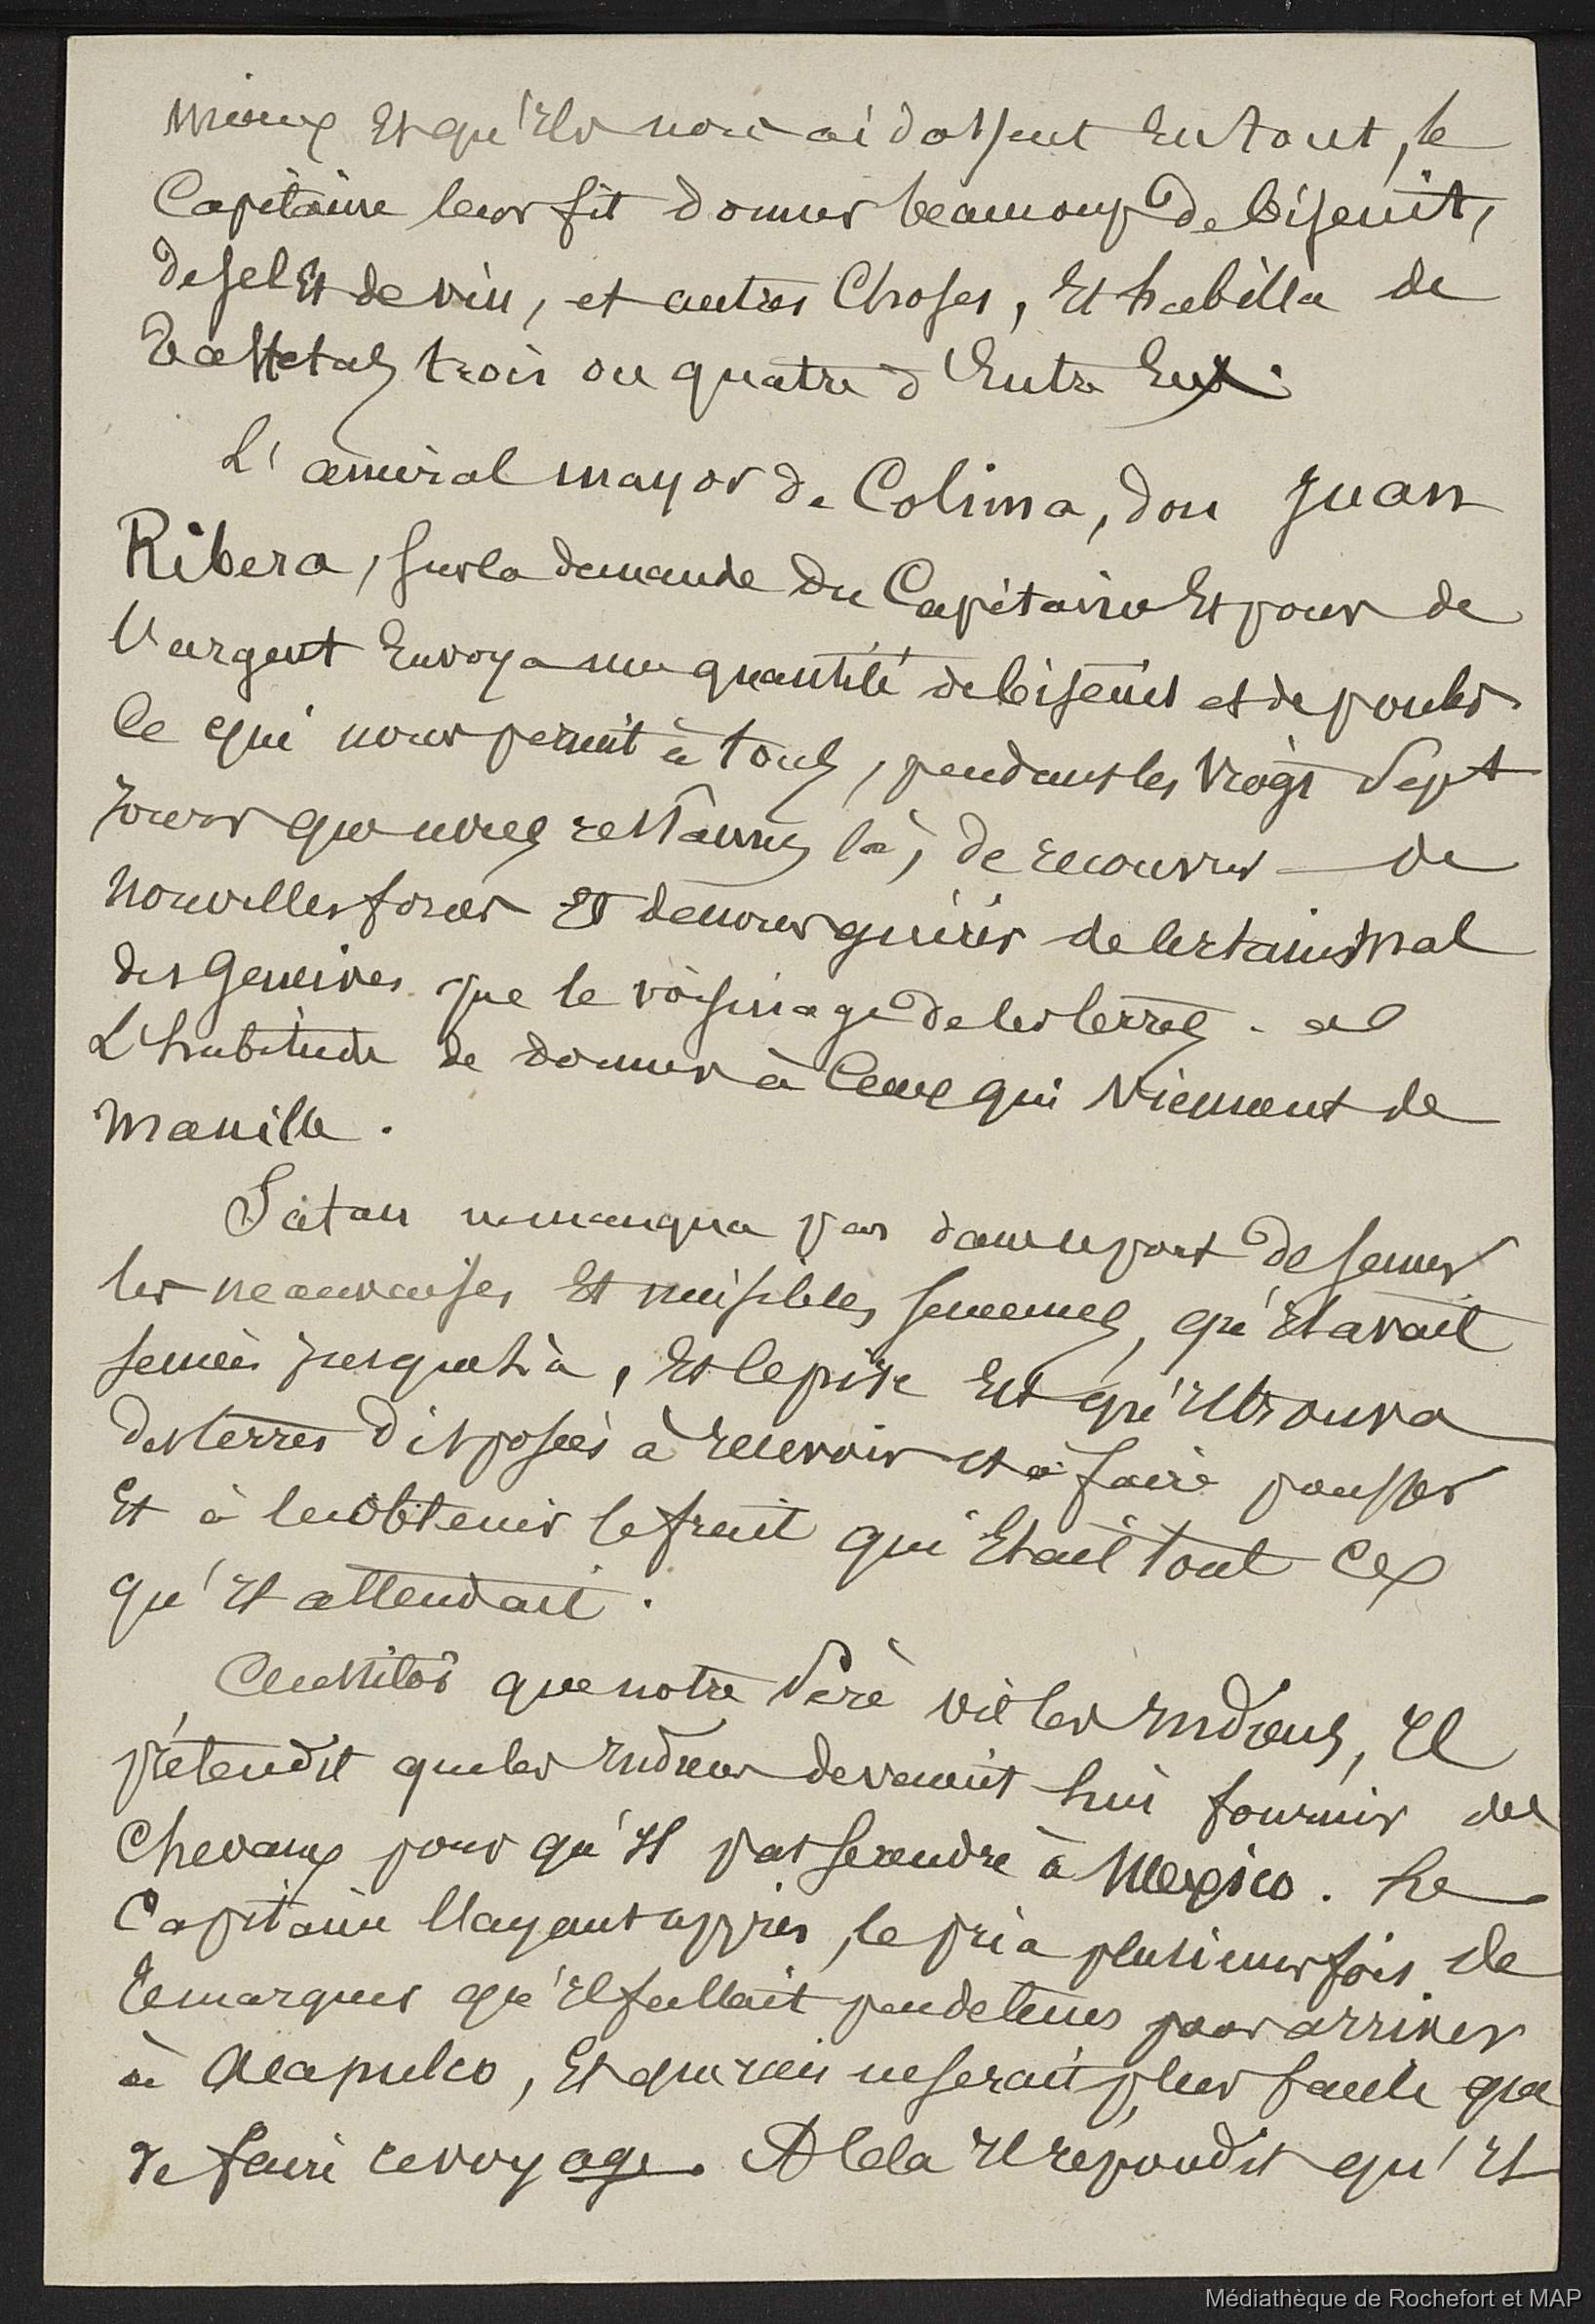 mieux Et qu'Ils nous aidassent En tout, le
Capitaine leur fit donner beaucoup de biscuit,
de sel Et de vin, et autres Choses, Et habilla de
taffetas trois ou quatre d'Entre Eux.
L'amiral mayor de Colima, don Juan
Ribera, sur la demande du Capitaine Et pour de
l'argent Envoya une quantité de biscuits et de poules
Ce qui nous permit à tous, pendant les vingt Sept
Jours que nous restâmes là, de recouvrer de
nouvelles forces Et de nous guérir de certains mal
des Gencives que le voisinage de ces terres a
L'habitude de donner à Ceux qui viennent de
Manille.
Satan ne manqua pas dans ce port de semer
les mauvaises Et nuisibles semences, qu'Il avait
semées jusque là, Et le pire Est qu'Il trouva
des terres disposées à recevoir et à faire pousser
Et à en obtenir le fruit qui Etait tout ce
qu'Il attendait.
Aussitôt que notre Père vit les Indiens, Il
prétendit que les Indiens devaient lui fournir des
Chevaux pour qu'Il pût se rendre à Mexico. Le
Capitaine l'ayant appris, le pria plusieurs fois de
remarquer qu'Il fallait peu de temps pour arriver
à Acapulco, Et que rien ne serait plus facile que
de faire ce voyage. A Cela Il répondit qu'Il
Médiathèque de Rochefort et MAP